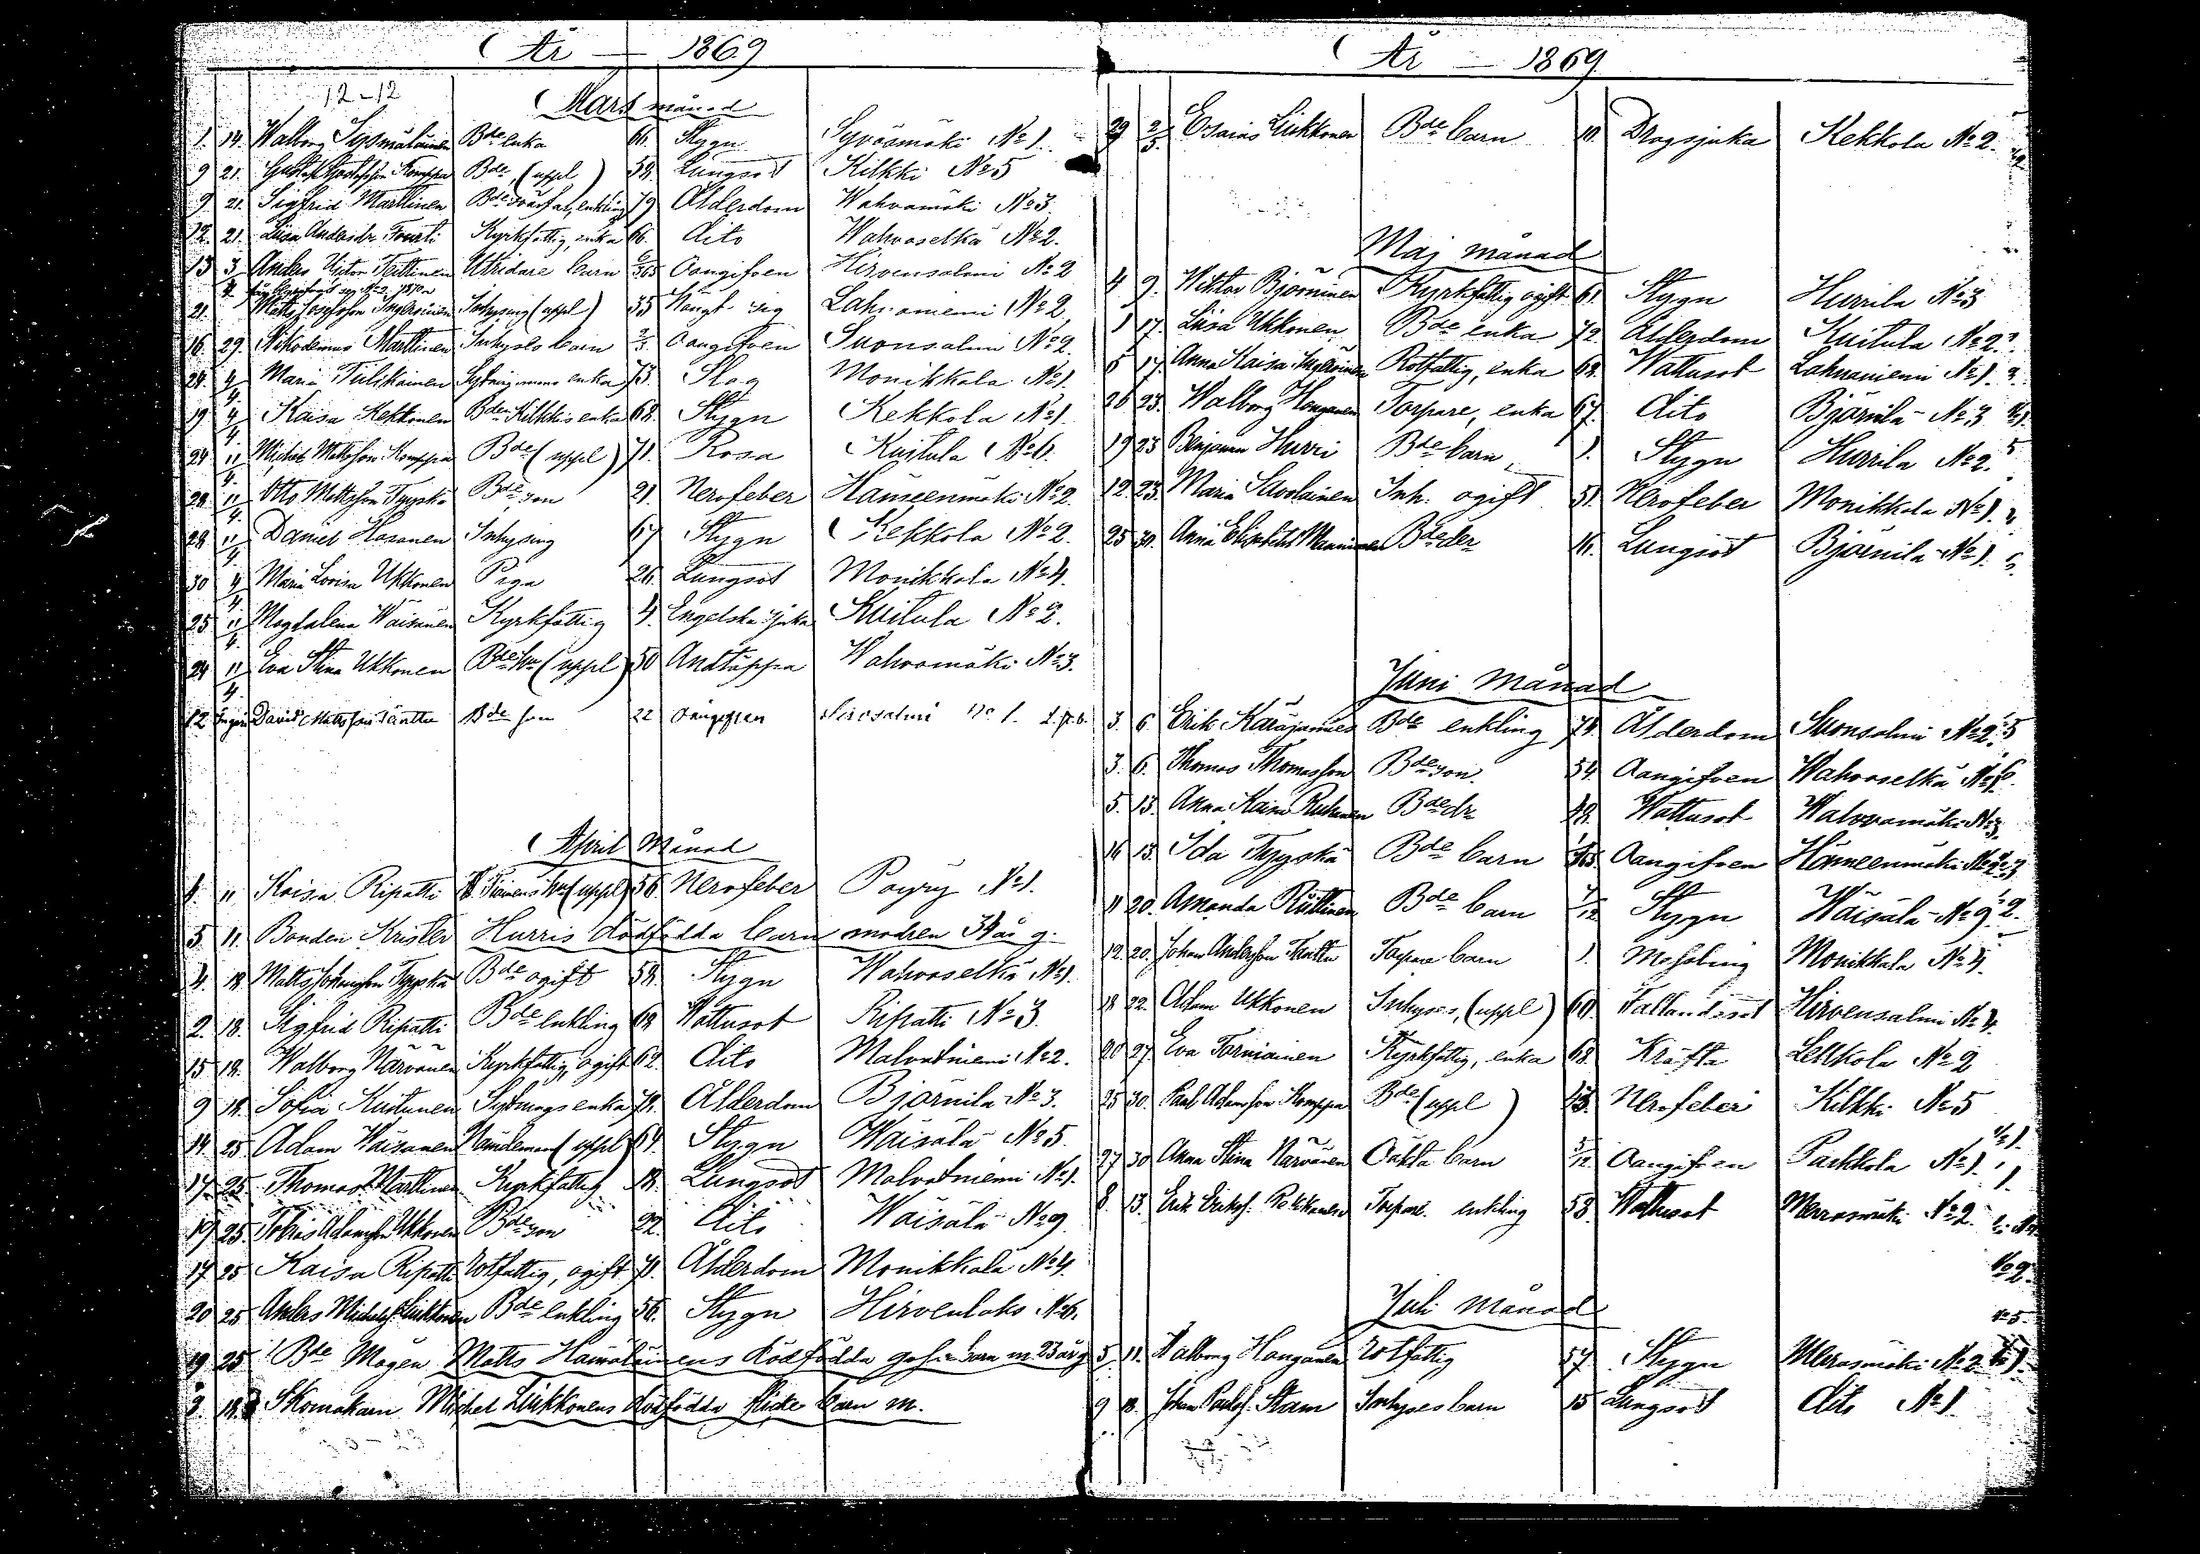 År — 1869
12-12
Mars månad
1. 14. Walborg Sysmäläinen Bde enka 66. Stygn Syväsmäki No 1.
9 21. Gustaf Gustafsson Komppa Bde (uppl) 58. Lungsot Kilkki No 5
9. 21. Sigfrid Marttinen Bde svärfar, enkling 79 Ålderdom Wahvamäki No 3.
12. 21. Liisa Andersdr Kyrkfattig, enka 66. dito Wahvaselkä No 2.
13 3/4 Anders Victor Teittinen Utridare barn 6/365 Oangifven Hirvensalmi No 2
21. Matts Josefsson Inhysing (uppl) 35 Hängt sig Lahnaniemi No 2,
16. 29. Nikodemus Marttinen Inhyses barn Oangifven Suonsalmi No 2.
24. 4/4. Maria Tulikainen Sytningsmans enka 73. Slag Monikkala No 1.
19 4/4. Kaisa Kekkonen Bden Kilkkis enka 68. Stygn Kekkola No 1.
24 11/4. Michel Mattsson Komppa Bde (uppl) 71. Rosa Kuitula No 6.
28 11/4. Otto Mattsson Tyyskä Bde son 21. Nervfeber Hämeenmäki No 2.
28 11/4 Daniel Hasanen Inhysing 67 Stygn Kekkola No 2.
30 4/4. Maria Lovisa Ukkonen Piga 26. Lungsot Monikkala No 4.
25 11/4. Magdalena Wäisänen Kyrkfattig 4. Engelska sjuka Kuitula No 2.
24 11/4. Eva Stina Ukkonen Bde hu (uppl) 50 Andtäppa Wahvamäki No 3.
12 Ingen David Mattsson Bde son 22 Oangifven No 1.
April Månad
4. 11 Kaisa Ripatti (uppl) 56 Nervfeber Pöyry No 1.
5. 11. Bonden Krister Hurris dödfödda barn modren
4. 18. Matts Johansson Tyyskä Bde ogift 59. Stygn Wahvaselkä No 1.
2. 18. Sigfrid Ripatti Bde enkling 69 Wattusot Ripatti No 3.
15 18. Walborg Närvänen Kyrkfattig, ogift 62. dito Malvaniemi No 2.
9 18. Sofia Kuitunen Sytnings enka 78. Ålderdom Björnila No 3.
14. 25. Adam Wäisänen Nämdeman (uppl) 64. Stygn Wäisälä No 5.
17. 25. Thomas Marttinen Kyrkfattig 18. Lungsot Malvaniemi No 1.
19 25 Tobias Adamsson Ukkonen Bde son 22. dito Wäisälä No 9
17 25 Kaisa Ripatti Rotfattig, ogift 71. Ålderdom Monikkala No 4.
20 25 Anders Michelss. Liukkonen Bde enkling 56. Stygn Hirvenlaks No 6.
19 25 Bde Mågen Matts Hämäläinens dödfödda gosse barn m 23 år g
3. 18. Skomakarn Michel Liukkonens dödfödda flicke barn m.
År — 1869
29 2/5 Esaias Liukkonen Bde barn 10. Dragsjuka Kekkola No 2.
Maj månad
4 9. Wiktor Björninen Kyrkfattig ogift 61. Stygn Hurrila No 3
1 17. Liisa Ukkonen Bde enka 72. Ålderdom Kuitula No 2.
6 17. Anna Kaisa Rotfattig, enka 68. Wattusot Lahnaniemi No 1.
26 23. Walborg Hanganen Torpare, enka 67. dito Björnila No 3
19 23 Benjamin Hurri Bde barn 1. Stygn Hurrila No 2.
12. 23. Maria Savolainen Inh. ogift 51. Nervfeber Monikkala No 1.
25 30. Anna Elisabeth Manninen Bde dr 16. Lungsot Björnila No 1.
Juni månad
3. 6. Erik Käräjämies Bde enkling 74. Ålderdom Suonsalmi No 2.
3. 6. Thomas Thomasson Bde son. 54. Oangifven Wahvaselkä
5. 13. Anna Kaisa Bde dr 48. Wattusot Wahvamäki No 3.
16 13. Ida Tyyskä Bde barn Oangifven Hämeenmäki No 2
11 20. Amanda Riittinen Bde barn 7/12 Stygn Wäisälä No 9
12. 20. Johan Andersson Torpare barn 1. Messling Monikkala No 4.
18 22. Adam Ukkonen Inhyses, (uppl) 60. Fallandesot Hirvensalmi No 4.
20 27. Eva Torniainen Kyrkfattig, enka 68. Kräfta Lekkola No 2
25 30. Paul Adamsson Komppa Bde (uppl) Nervfeber Kilkki No 5
27 30 Anna Stina Närvänen Oäkta barn 3/12 Oangifven Parkkola No 1.
8. 13. Erik Eriksf. Pekkanen Torpare enkling 53. Wattusot Merrasmäki No 2.
Juli månad
5. 11. Walborg Hanganen Rotfattig 57 Stygn Merasmäki No 2
9 18. Johan Paulsf. Stam Inhyses barn 15 Lungsot dito No 1.